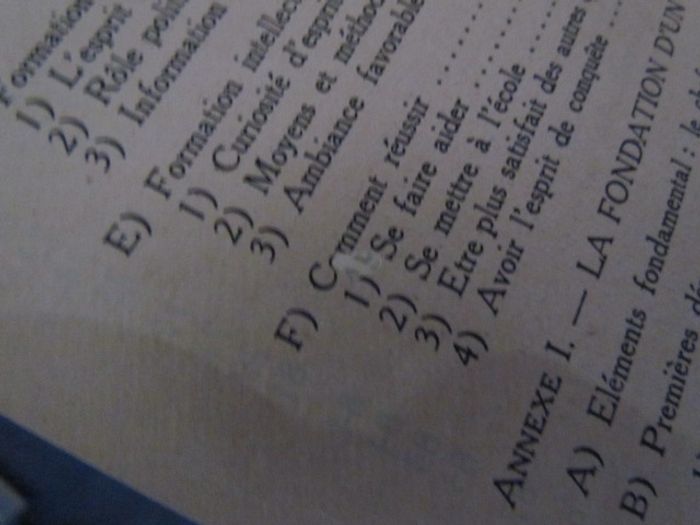 Formation
1) L'esprit
2) Rôle
3) Information
E) Formation
1) Curiosité
2) Moyens et
3) Ambiance favorable
F) Comment réussir ........
1) Se faire aider ........
2) Se mettre à l'école ....
3) Etre plus satisfait des autres
4) Avoir l'esprit de conquête ...
ANNEXE I. — LA FONDATION D'UN
A) Eléments fondamental :
B) Premières